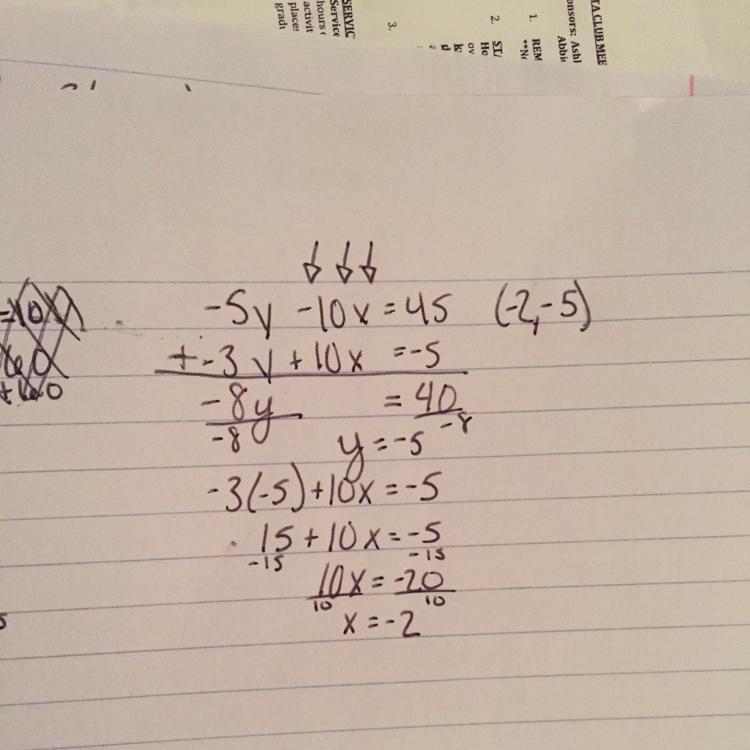 TA CLUB MEE
onsors: Ashl
Abbi
1. REM
**N
2. ST
He
ov
3.
SERVIC
Service
hours
activit
place
gradi
-5y -10x = 45 (-2, -5)
+ -3y + 10x = -5
-8y = 40
-8 -8
y = -5
-3(-5) + 10x = -5
15 + 10x = -5
-15 -15
10x = -20
10 10
x = -2